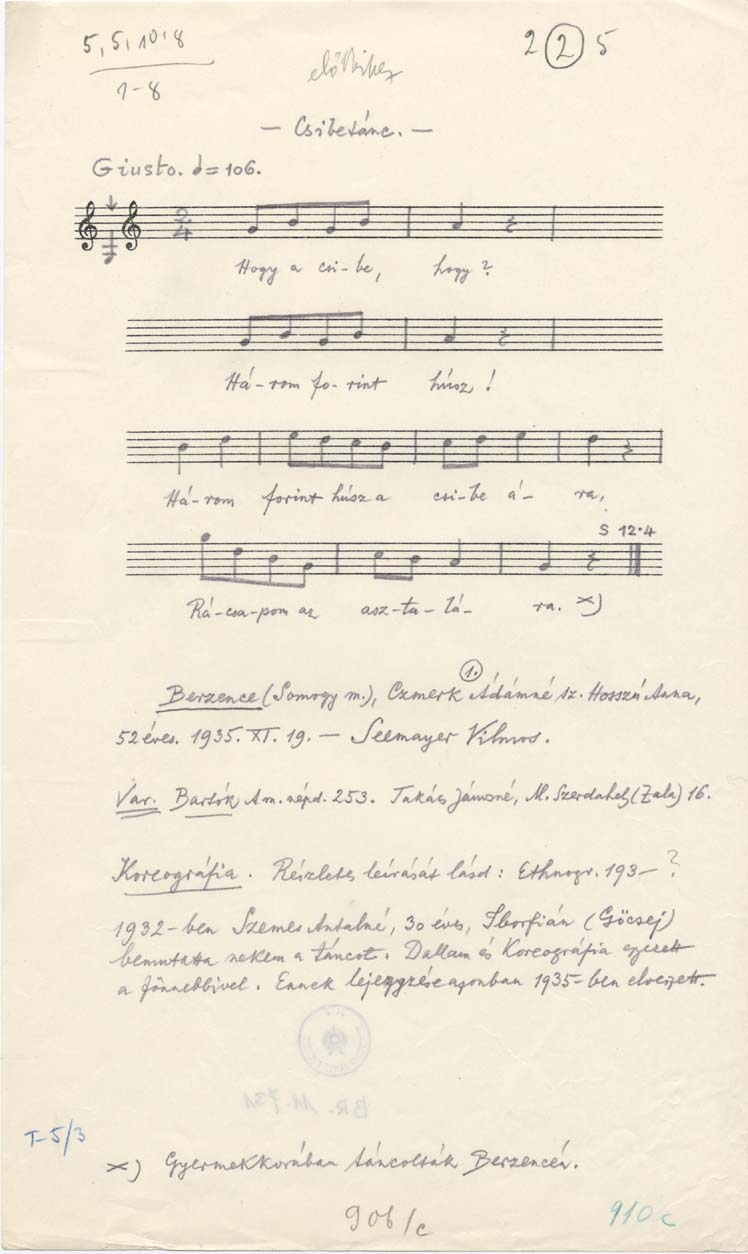 5, 5, 10, 8
1-8
2 2 5
— Csibetánc. —
Giusto. = 106.
2/4
Hogy a csi-be, hogy?
Há-rom fo-rint húsz!
Há-rom forint húsz a csi-be á-ra,
S 12.4
Rá-csa-pom az asz-ta-lá-ra. x)
1.
Berzence (Somogy m.), Czmerk Ádámné sz. Hosszú Anna,
52 éves. 1935. XI. 19. — Seemayer Vilmos.
Var. Bartók A m. népd. 253. Takács Jánosné, M. Szerdahely (Zala) 16.
Koreográfia. Részletes leírását lásd: Ethnogr. 193- ?
1932-ben Szemes Antalné, 30 éves, Iborfián (Göcsej)
bemutatta nekem a táncot. Dallam és Koreográfia egyezett
a fönnebbivel. Ennek lejegyzése azonban 1935-ben elveszett.
BR. 11.731
T-5/3
x) Gyermekkorúban táncolták Berzencén.
906/c
910 c